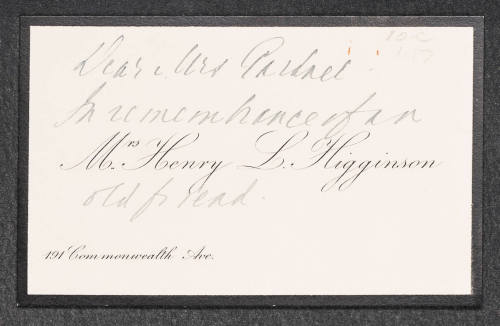 Dear Mrs
In remembrance of an
Mrs Henry L. Higginson
old friend.
191 Commonwealth Ave.